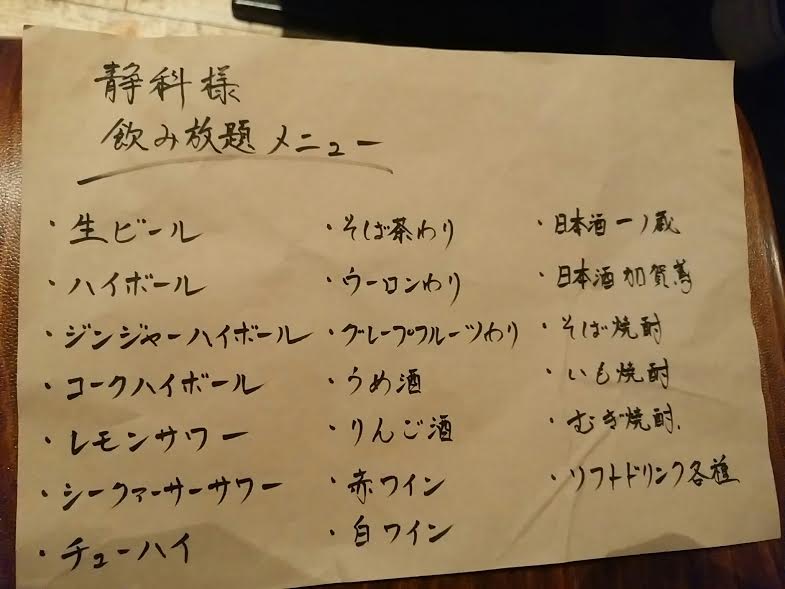 静科様
飲み放題メニュー
・生ビール
・ハイボール
・ジンジャーハイボール
・コークハイボール
・レモンサワー
・シークァーサーサワー
・チューハイ
・そば茶わり
・ウーロンわり
・グレープフルーツわり
・うめ酒
・りんご酒
・赤ワイン
・白ワイン
・日本酒一ノ蔵
・日本酒加賀鳶
・そば焼酎
・いも焼酎
・むぎ焼酎.
・ソフトドリンク各種